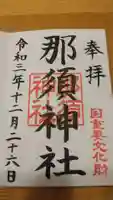 奉拝
国重要文化財
那須神社
那須神社
令和三年十二月二十六日